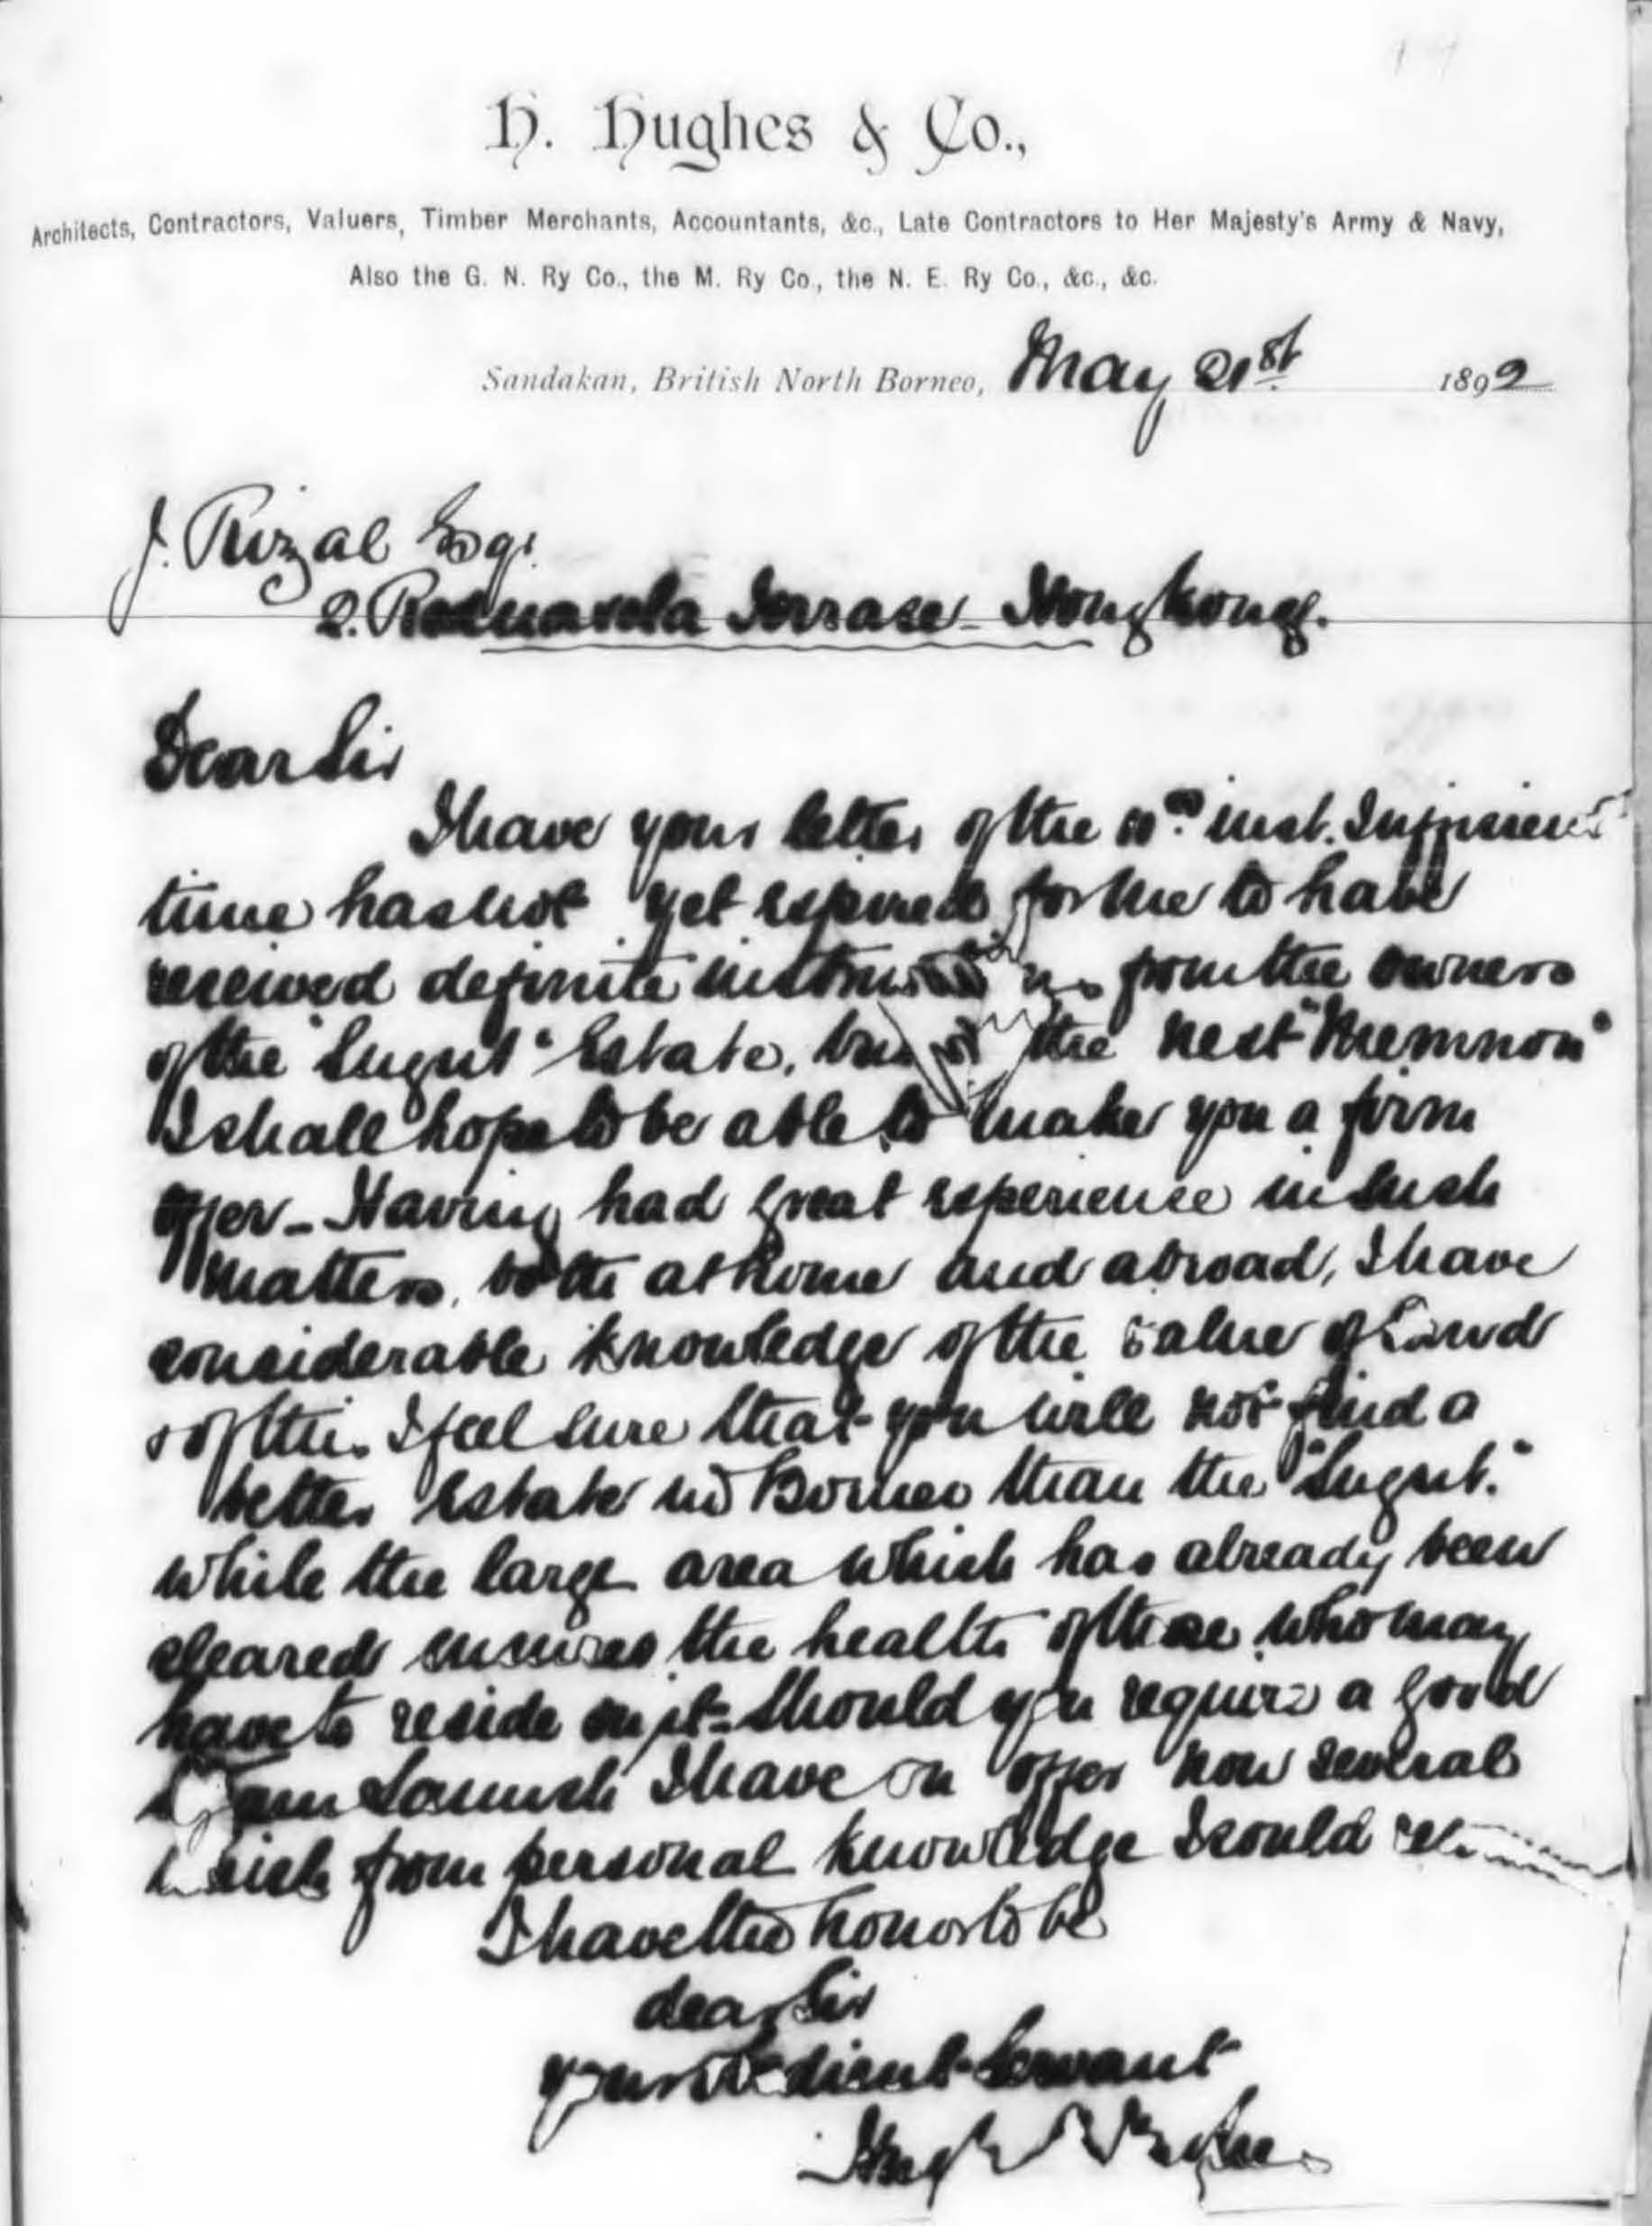 H. Hughes & Co.,
Architects, Contractors, Valuers, Timber Merchants, Accountants, &c., Late Contractors to Her Majesty's Army & Navy,
Also the G. N. Ry Co., the M. Ry Co., the N. E. Ry Co., &c., &c.
Sandakan, British North Borneo, May 21st 1892
J. Rizal Esqr.
2. Terrase - Hongkong.
Dear Sir
I have your letter of the inst. Sufficient
time has not yet expired for me to have
received definite from the owners
of the "Sugut" Estate, but the next "Memnon"
I shall hope to be able to make you a firm
offer - Having had great experience in such
matters, both at home and abroad, I have
considerable knowledge of the value of Land
I feel sure that you will not find a
better Estate in Borneo than the "Sugut."
while the large area which has already been
cleared ensures the health of those who may
have to reside on it - Should you require a good
Steam Launch I have on offer now several
which from personal knowledge I could
I have the honor to be
dear Sir
your obedient Servant
Hugh Hughes